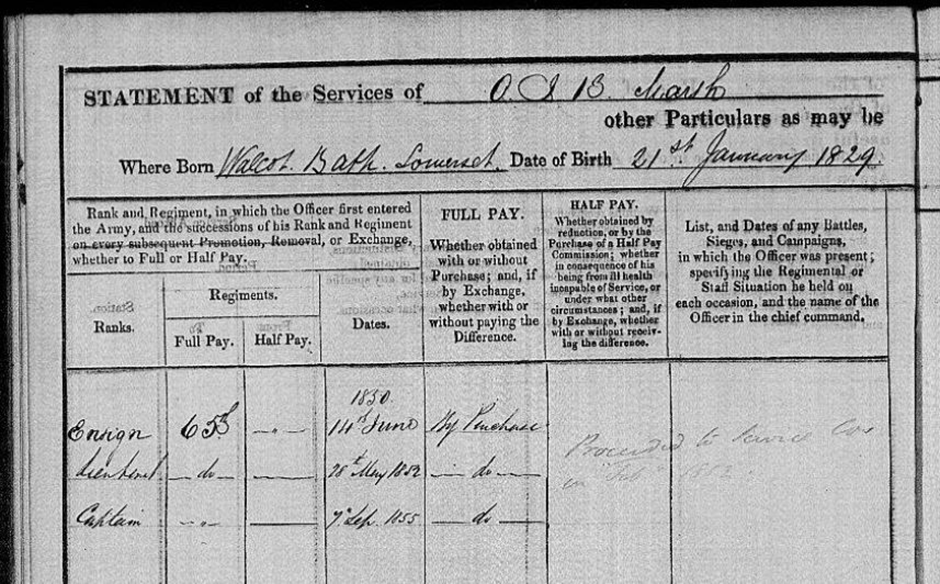 STATEMENT of the Services of O. I. B. Marsh
other Particulars as may be
Where Born Walcot. Bath. Somerset. Date of Birth 21st. January 1829.
Rank and Regiment, in which the Officer first entered
the Army, and the successions of his Rank and Regiment
on every subsequent Promotion, Removal, or Exchange,
whether to Full or Half Pay.
Ranks.
Regiments.
Full Pay.
Half Pay.
Dates.
FULL PAY.
Whether obtained
with or without
Purchase; and, if
by Exchange,
whether with or
without paying the
Difference.
HALF PAY.
Whether obtained by
reduction, or by the
Purchase of a Half Pay
Commission; whether
in consequence of his
being from ill health
incapable of Service, or
under what other
circumstances; and, if
by Exchange, whether
with or without receiv-
ing the difference.
List, and Dates of any Battles,
Sieges, and Campaigns,
in which the Officer was present;
specifying the Regimental or
Staff Situation he held on
each occasion, and the name of the
Officer in the chief command.
1850.
Ensign 65th — " — 14th June By Purchase
Lieutenant — do — — 28th May 1852 — do —
Captain - " - — 7th Sep. 1855 — do —
Proceeded to
in Feb 1852